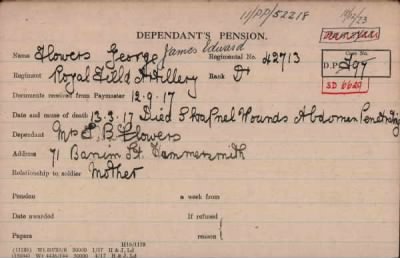 11/PP/52218
19/12/23
DEPENDANT'S PENSION.
Name Flowers George James Edward Regimental No. 42713
Regiment Royal Field Artillery Rank Dr
Case No.
D.P. 497
SD 6620
Documents received from Paymaster 12-9-17
Date and cause of death 13-3-17 Died Shrapnel Wounds Abdomen Penetrating
Dependant Mrs E. B. Flowers
Address 71 Banim St. Hammersmith
Relationship to soldier Mother
Pension a week from
Date awarded If refused
Papers reason
H16/1179